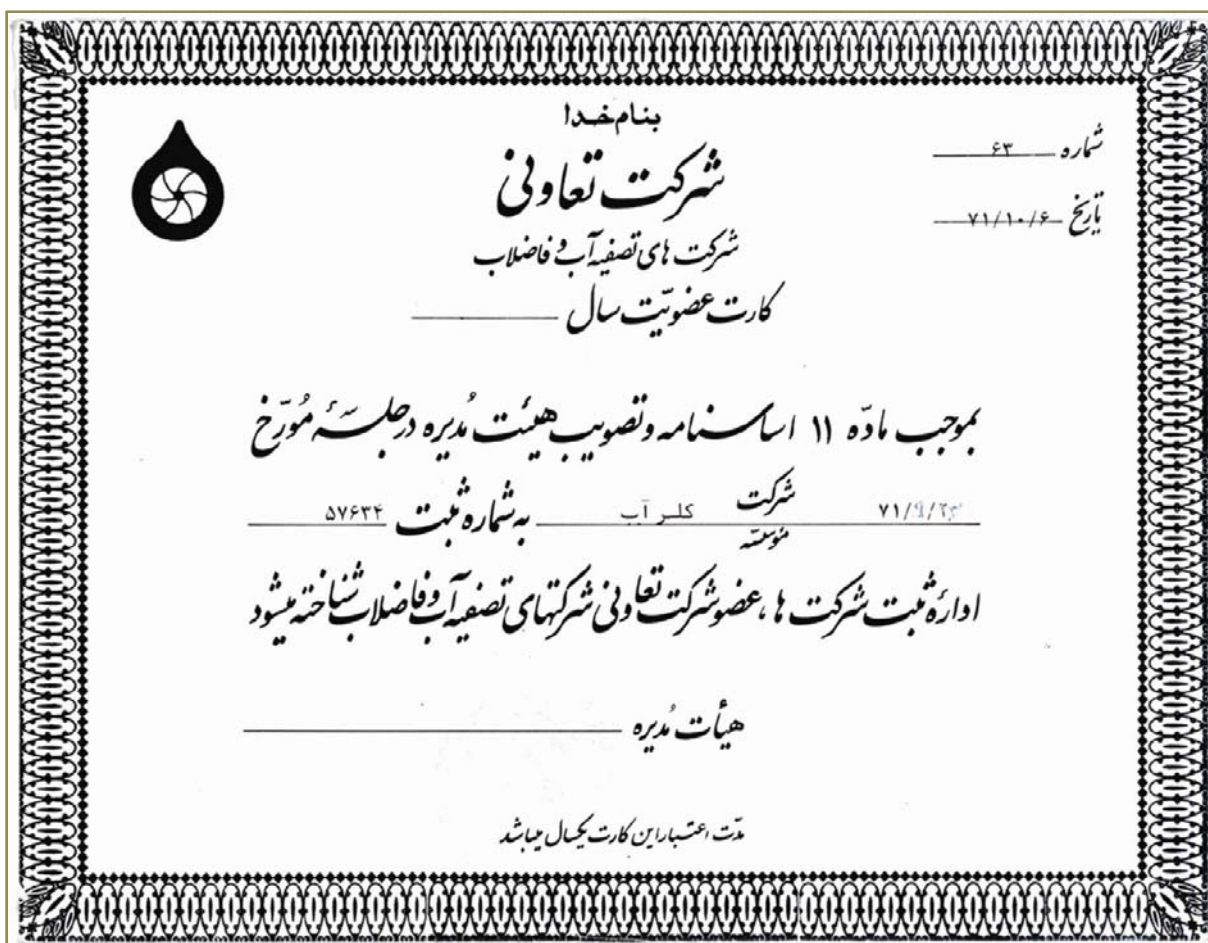 بنام خدا
شماره ۶۳
تاریخ ۷۱/۱۰/۶
شرکت تعاونی
شرکت های تصفیه آب و فاضلاب
کارت عضویّت سال
بموجب مادّه ۱۱ اساسنامه و تصویب هیئت مُدیره در جلسهٔ مُورّخ
۷۱/۹/۲۳ شرکت کلر آب به شماره ثبت ۵۷۶۳۴
مؤسسه
ادارهٔ ثبت شرکت ها، عضو شرکت تعاونی شرکتهای تصفیه آب و فاضلاب شناخته میشود
هیأت مُدیره
مدّت اعتبار این کارت یکسال میباشد